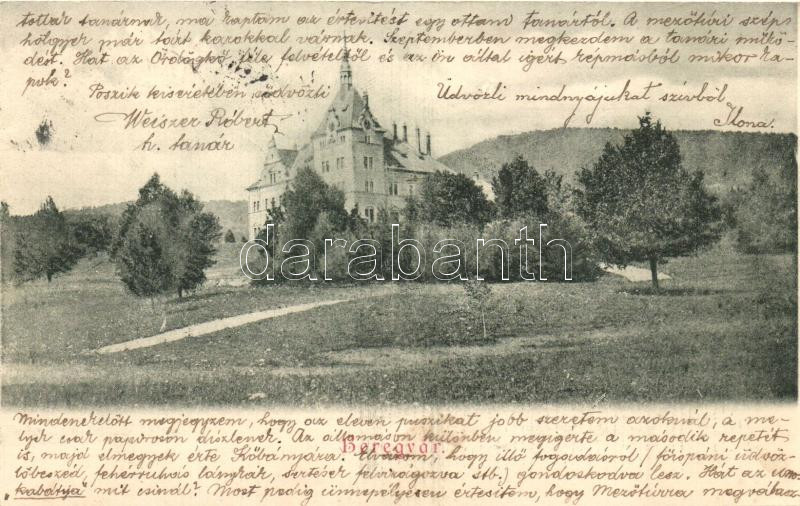 tottak tanárnak, ma kaptam az értesítést egy ottani tanártól. A mezőtúri szép
hölgyek már tárt karokkal várnak. Szeptemberben megkezdem a tanári műkö-
dést. Hát az Ördögkő féle felvételből és az ön által igért képmásból mikor ka-
pok?
Poszik kiséretében üdvözli
Weiszer Róbert
h. tanár
Üdvözli mindnyájukat szívből
Ilona.
darabanth
Mindenekelőtt megjegyzem, hogy az eleven puszikat jobb szeretem azoknál, a me-
lyek csak papiroson díszlenek. Az állomáson különben megigérte a második repetét
is, majd elmegyek érte Kőbányára. Elvárom, hogy illő fogadásról (főispáni üdvöz-
Beregvár.
lőbeszéd, fehérruhás lánykák, sertések felvirágozva stb.) gondoskodva lesz. Hát az
kabátja" mit csinál? Most pedig ünnepélyesen értesítem, hogy Mezőtúrra megválasz-